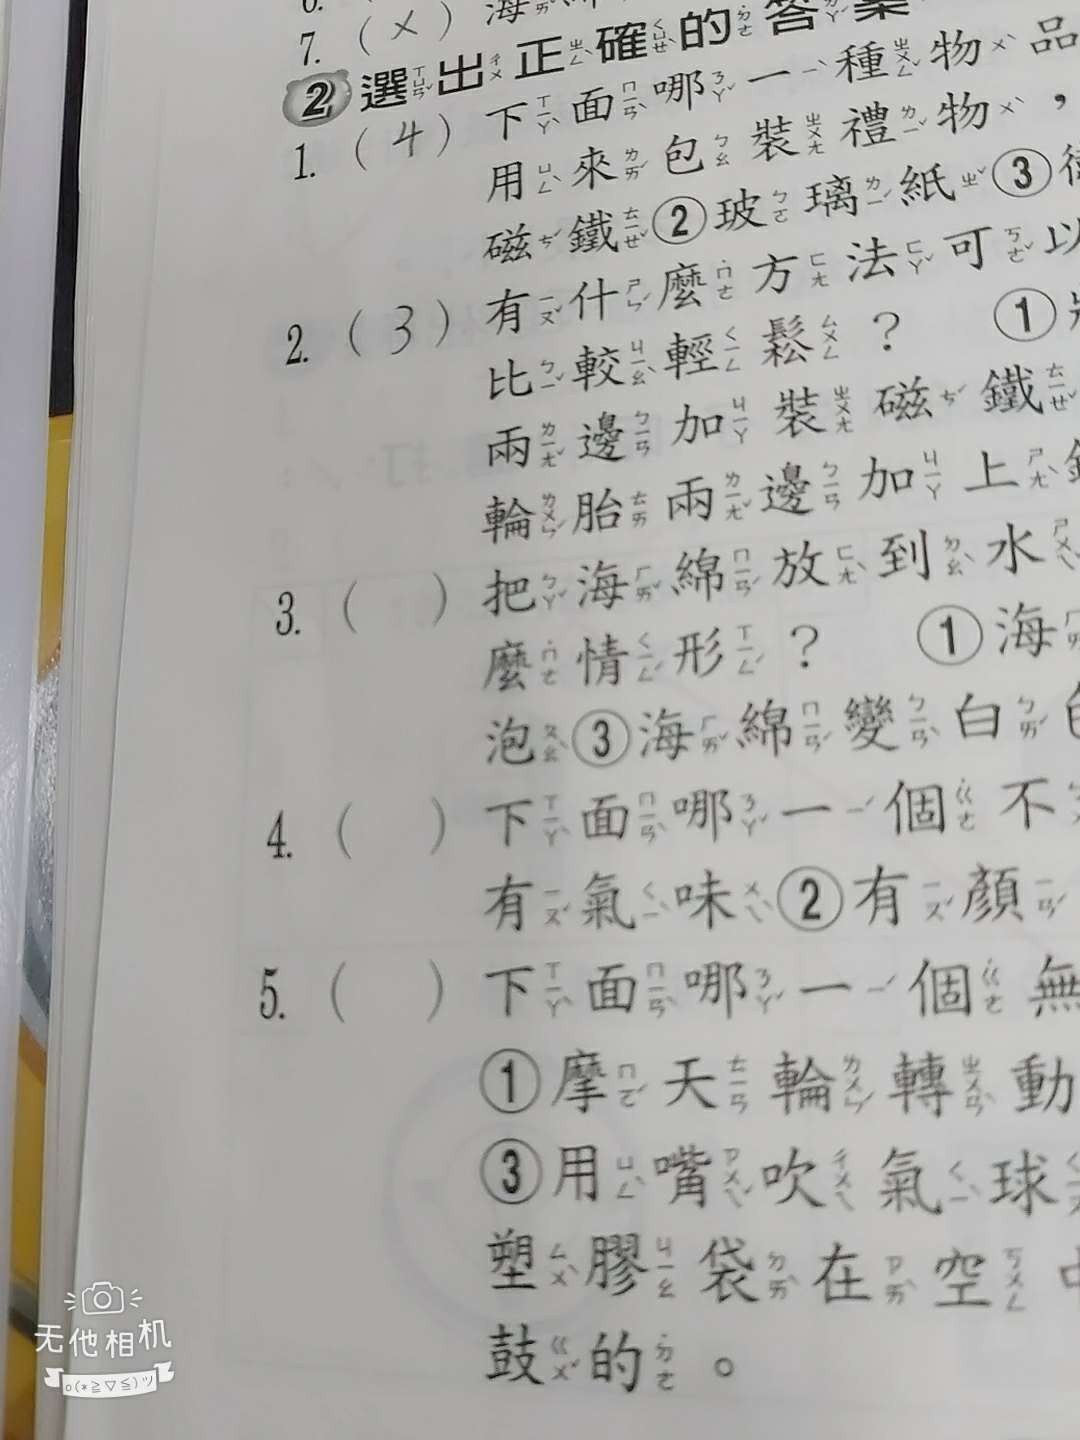 6.
7. (×) 海
2 選出正確的答案
1. (4) 下面哪一種物品
用來包裝禮物，
磁鐵②玻璃紙③
2. (3) 有什麼方法可以
比較輕鬆？ ①
兩邊加裝磁鐵
輪胎兩邊加上
3. ( ) 把海綿放到水
麼情形？ ①海
泡③海綿變白色
4. ( ) 下面哪一個不
有氣味②有顏
5. ( ) 下面哪一個無
①摩天輪轉動
③用嘴吹氣球
塑膠袋在空中
鼓的。
无他相机
o(*≧▽≦)ツ